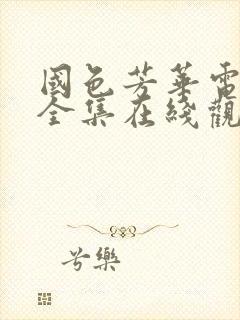 國色芳華電
全集在綫觀
兮樂